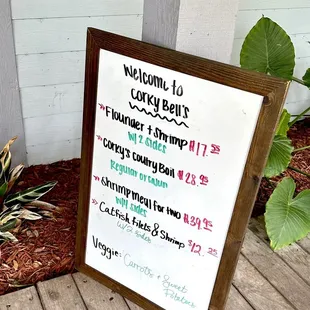 Welcom to
Corky Bell's
» Flounder + Shrimp $17.95
w/ 2 sides
» Corky's Coutry Boil $28.95
Regular or cajun
» Shrimp meal for two $39.95
w/ sides
» Catfish Filets & Shrimp $12.95
w/2 sides
Veggie: Carrots + Sweet
Potatoes